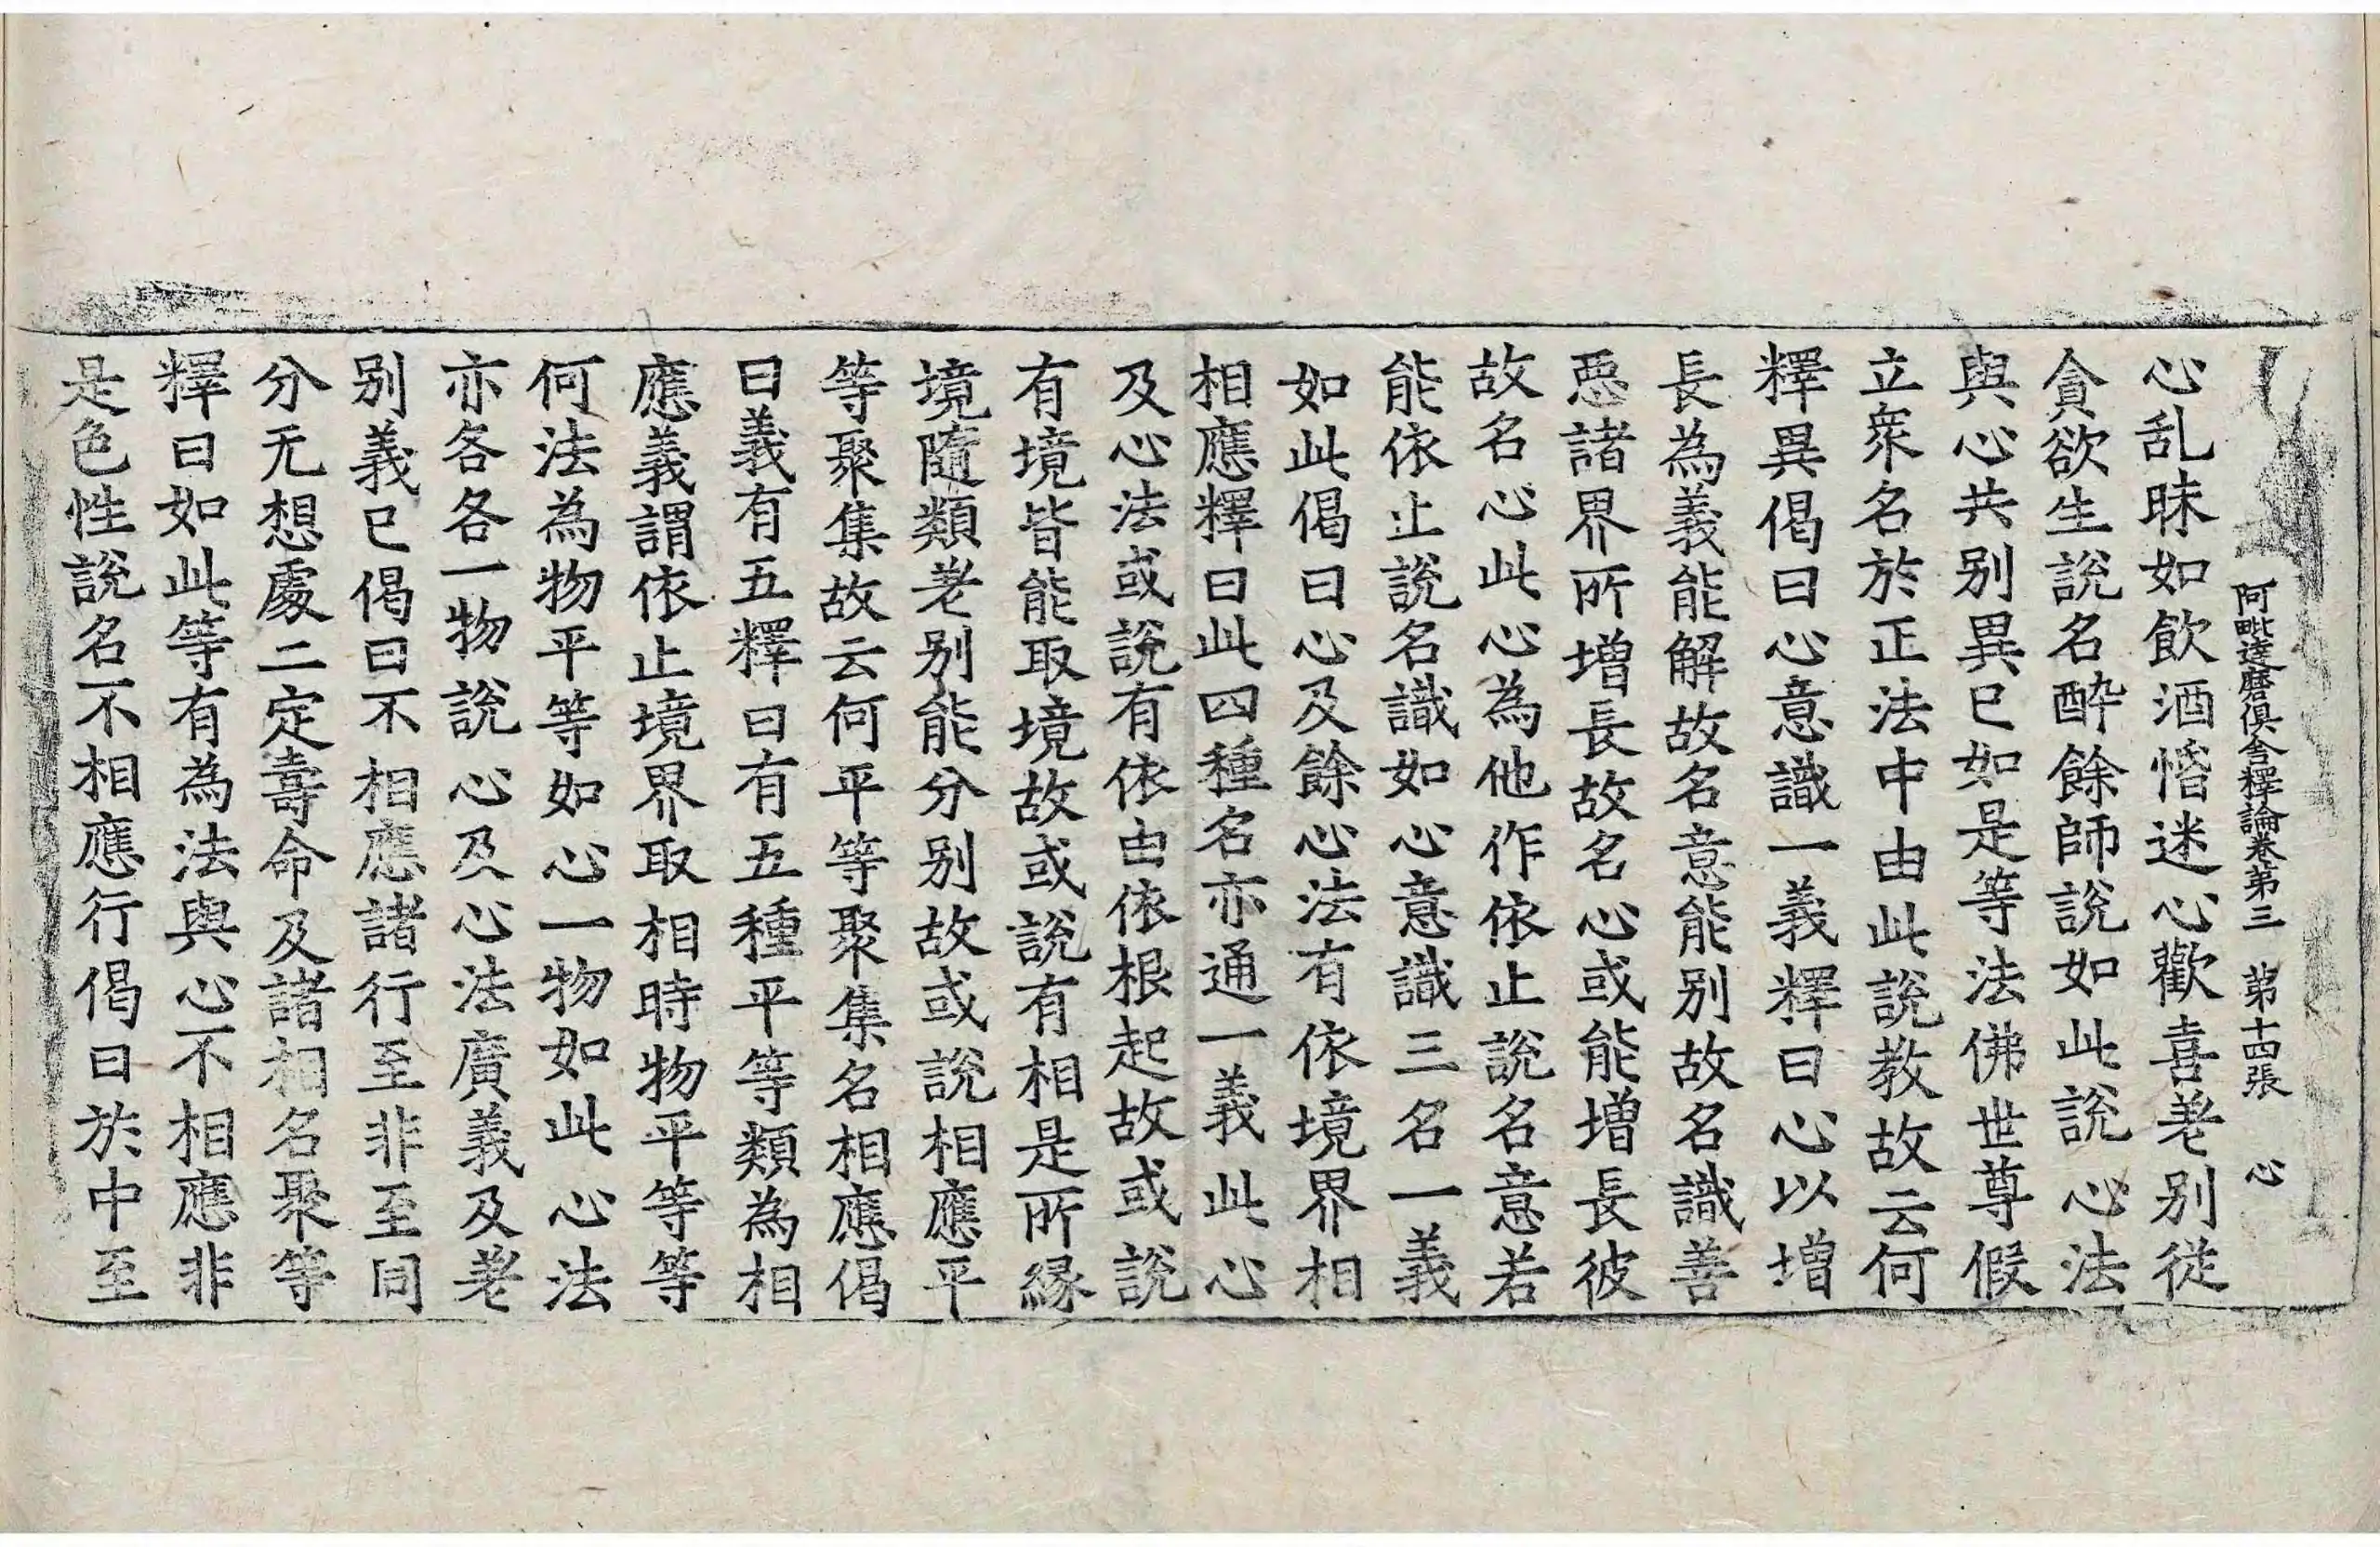 阿毗達磨俱舍釋論卷第三 第十四張 心
心乱昧如飲酒惛迷心歡喜差别從
貪欲生說名醉餘師說如此說心法
與心共别異已如是等法佛世尊假
立衆名於正法中由此說教故云何
釋異偈曰心意識一義釋曰心以增
長為義能解故名意能别故名識善
惡諸界所增長故名心或能增長彼
故名心此心為他作依止說名意若
能依止說名識如心意識三名一義
如此偈曰心及餘心法有依境界相
相應釋曰此四種名亦通一義此心
及心法或說有依由依根起故或說
有境皆能取境故或說有相是所緣
境隨類差别能分别故或說相應平
等聚集故云何平等聚集名相應偈
曰義有五釋曰有五種平等類為相
應義謂依止境界取相時物平等等
何法為物平等如心一物如此心法
亦各各一物說心及心法廣義及差
别義已偈曰不相應諸行至非至同
分无想處二定壽命及諸相名聚等
釋曰如此等有為法與心不相應非
是色性說名不相應行偈曰於中至